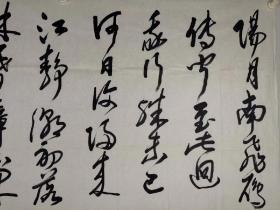 陽月南飛雁
傳聞至此迴
我行殊未已
何日復歸來
江靜潮初落
林昏瘴不